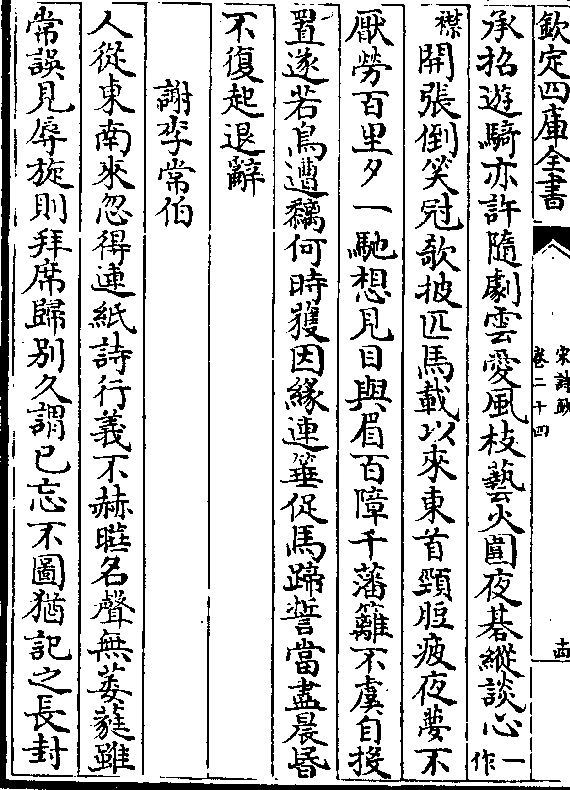 欽定四庫全書
宋詩鈔
卷二十四
十四
承招遊騎亦許隨劇雲愛風枝藝火圍夜碁縱談心一作
襟開張倒笑冠欹披匹馬載以來東首頸脰疲夜夢不
厭勞百里夕一馳想見目與眉百障千藩籬不虞自投
置遂若鳥遭黐何時獲因緣連箠促馬蹄誓當盡晨昏
不復起退辭
謝李常伯
人從東南來忽得連紙詩行義不赫曦名聲無葳蕤雖
常誤見辱旋則拜席歸别久謂已忘不圖猶記之長封